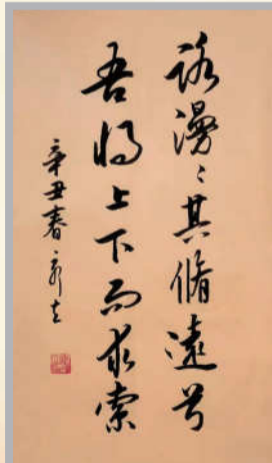 路漫〻其脩遠兮
吾将上下而求索
辛丑春